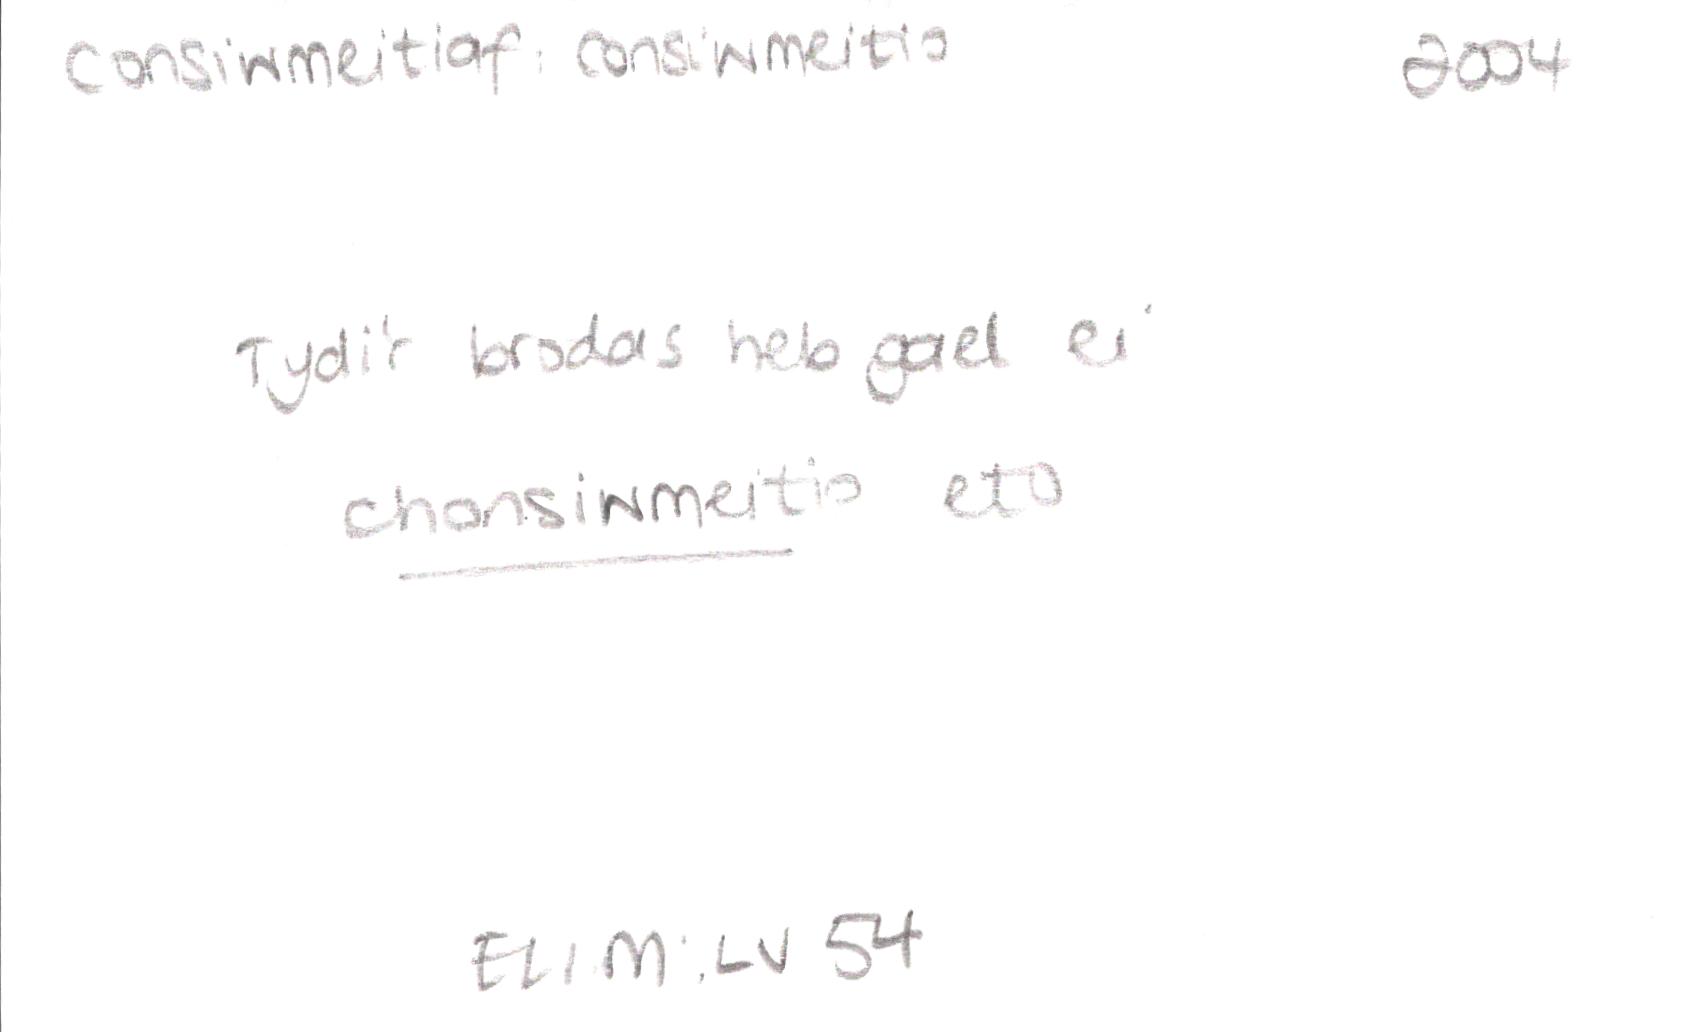 consiwmeitiaf: consiwmeitio 2004
Tydi'r brodas heb gael ei
chonsiwmeitio eto
ELlM: LV 54